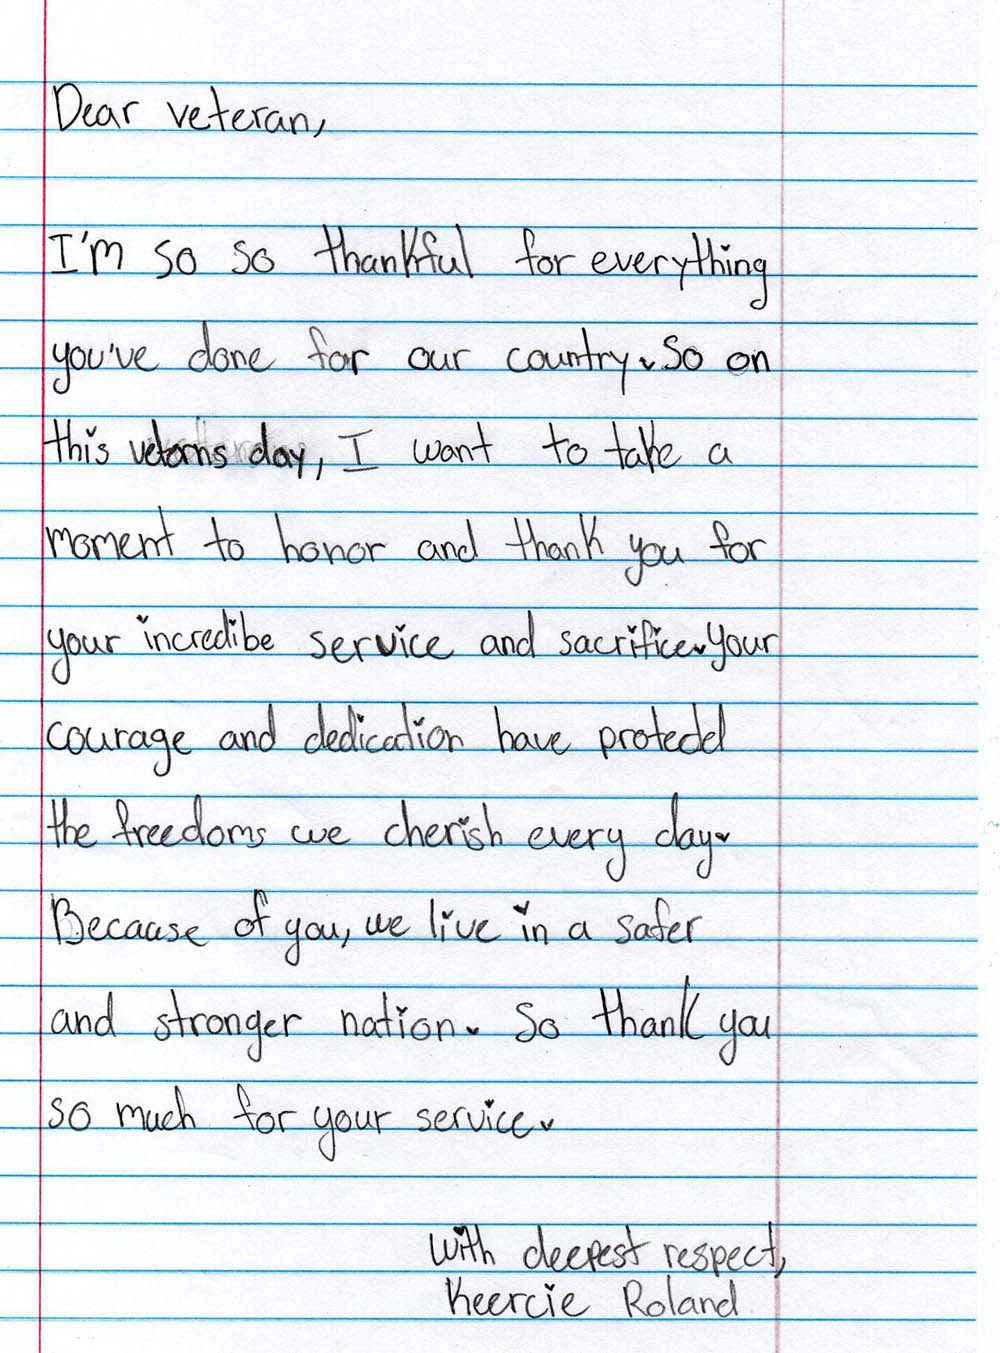 Dear veteran,
I'm so so thankful for everything
you've done for our country. So on
this vetorns day, I want to take a
moment to honor and thank you for
your incredibe service and sacrifice. Your
courage and dedication have protected
the freedoms we cherish every day.
Becaase of you, we live in a safer
and stronger nation. So thank you
so much for your service.
With deepest respect,
Keercie Roland